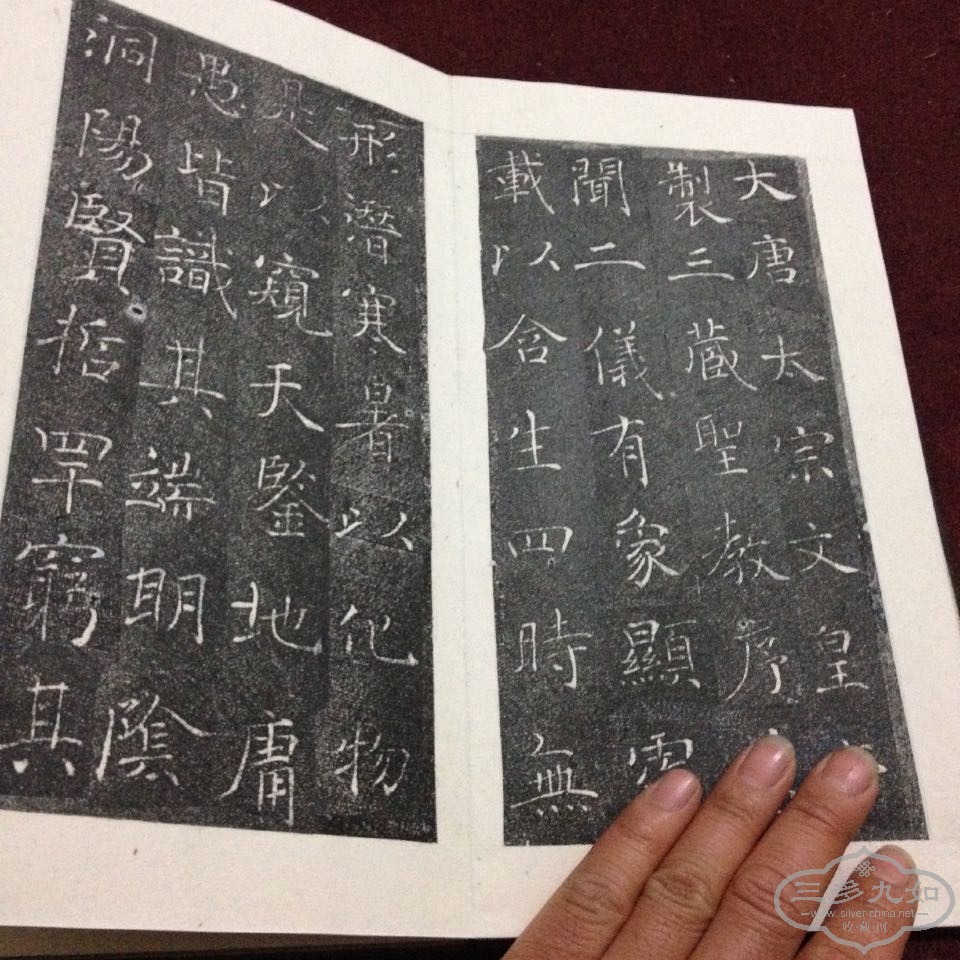 大唐太宗文皇
製三藏聖教序
聞二儀有象顯
載以含生四時無
形潛寒暑以化物
是以窺天鑒地庸
愚皆識其端明陰
洞陽賢哲罕窮其
三多九如
www.silver-china.net
收藏网